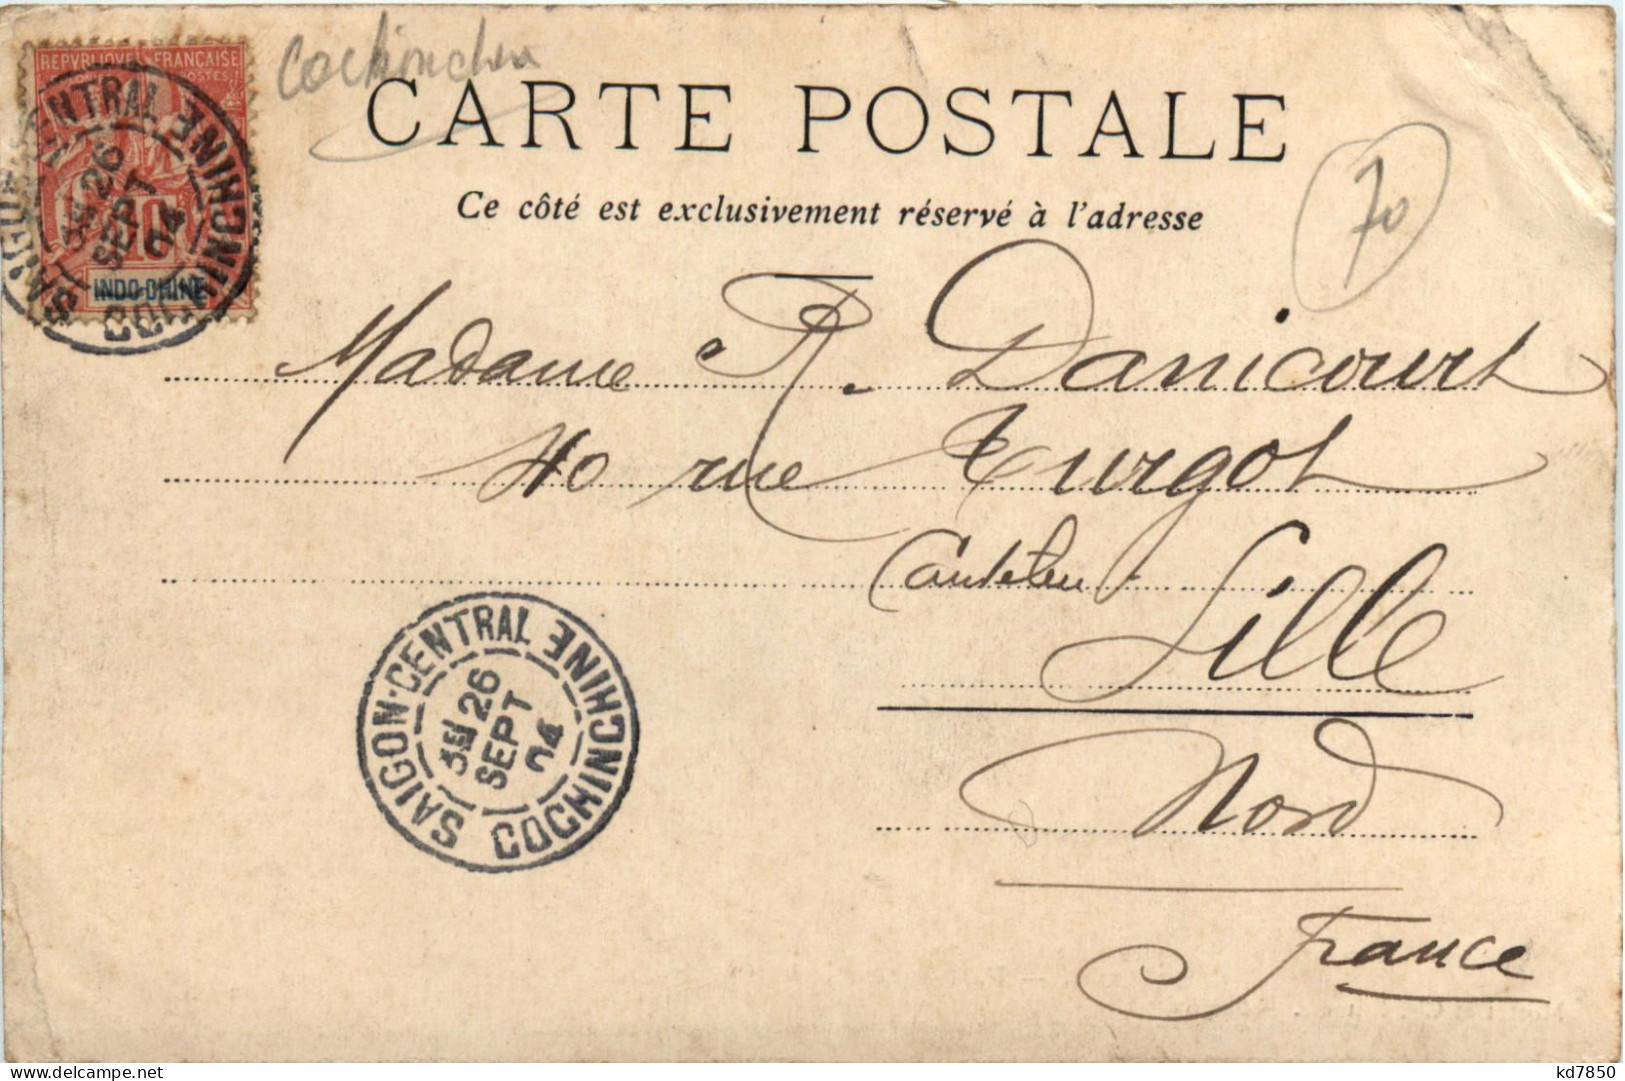 Cochinchin
REPVBLIQVE FRANÇAISE
POSTES
10
INDO-CHINE
SAIGON-CENTRAL COCHINCHINE
3E 26
SEPT
04
CARTE POSTALE
70
Ce côté est exclusivement réservé à l'adresse
Madame R. Danicourt
40 rue Turgot
Canteleu
Lille
SAIGON-CENTRAL COCHINCHINE
3E 26
SEPT
04
Nord
France
kd7850